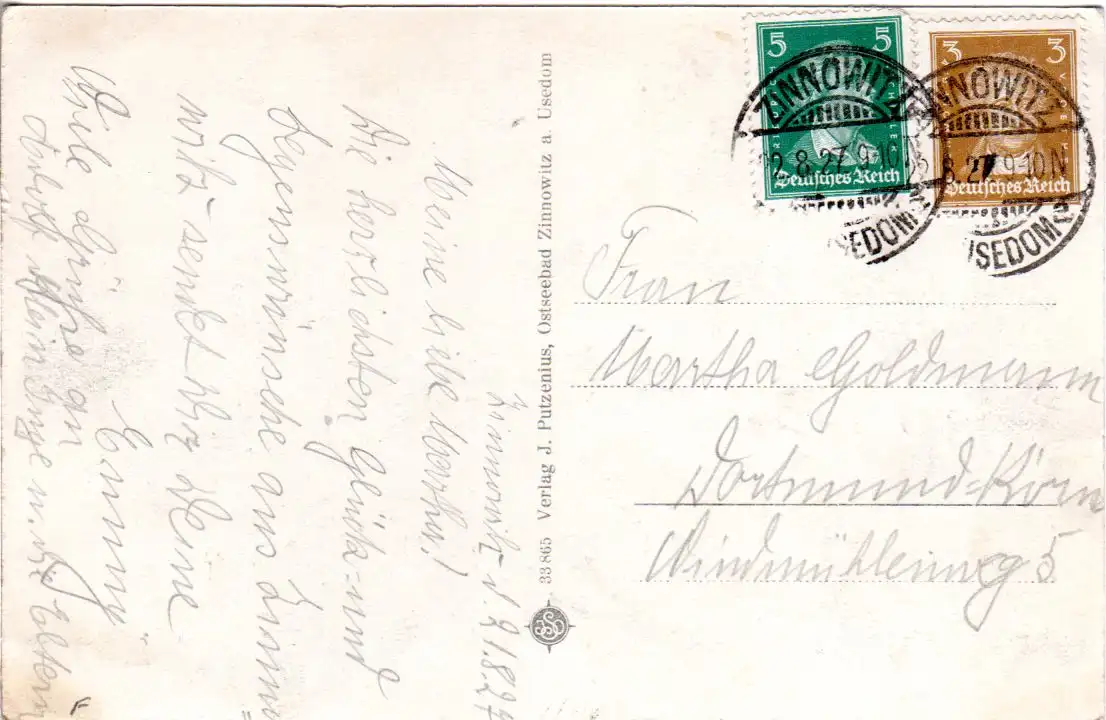 5 5
Deutsches Reich
3 3
Deutsches Reich
ZINNOWITZ
22.8.27.9-10N
USEDOM
ZINNOWITZ
8.27.9-10N
USEDOM
33865 Verlag J. Putzenius, Ostseebad Zinnowitz a. Usedom
Zinnowitz d. 21.8.27
Meine liebe Martha!
Die herzlichsten Glück- und
Segenswünsche aus Zinno=
witz sendet Dir Deine
Emmy
Viele Grüße an
Adolf Kleine u. D. Eltern
Frau
Martha Goldmann
Dortmund-Körne
Windmühlenweg 5